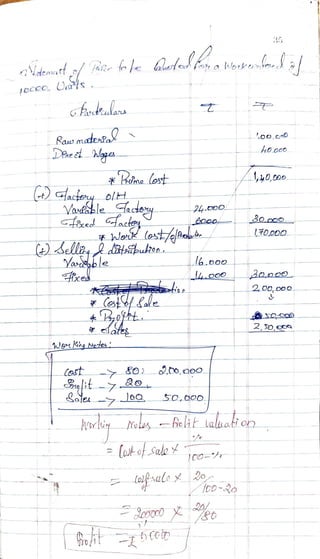 Statement of Price to be Quoted for a Work order of
10000 Units.
Particulars ₹ ₹
Raw material 1,00,000
Direct Wages 40,000
* Prime Cost 1,40,000
(+) Factory O/H
Variable Factory 24,000
Fixed Factory 6000 30,000
* Work Cost/of 170,000
(+) Selling & distribution.
Variable 16,000
Fixed 14,000 30,000
* Cost of Sale 2,00,000
* Profit. 50,000
* Sales 2,50,000
Working Notes:
Cost → 80; 2,00,000
Profit → 20
Sales → 100 50,000
Working Notes - Profit valuation
= Cost of sale x %/100-%
= Cost of sale x 20/100-20
= 200000 x 20/80
Profit = ₹ 50000